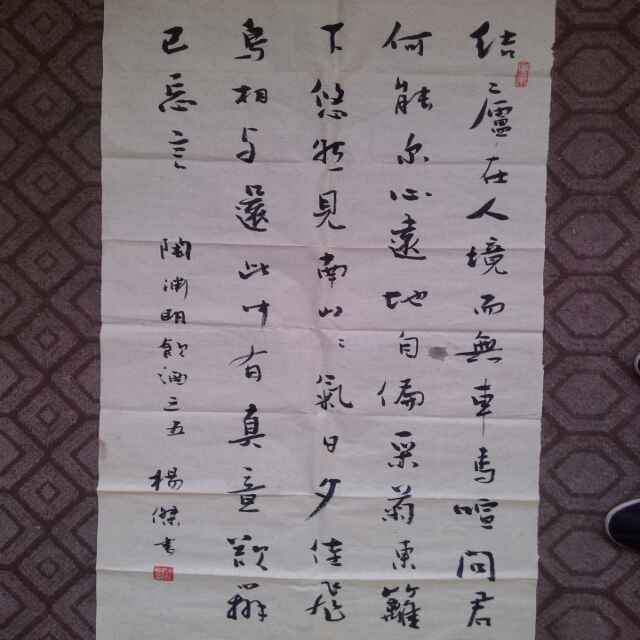 结廬在人境而無車馬喧問君
何能尔心遠地自偏采菊東籬
下悠然見南山々氣日夕佳飛
鳥相与還此中有真意欲辨
已忘言
陶渊明飲酒之五
楊傑書